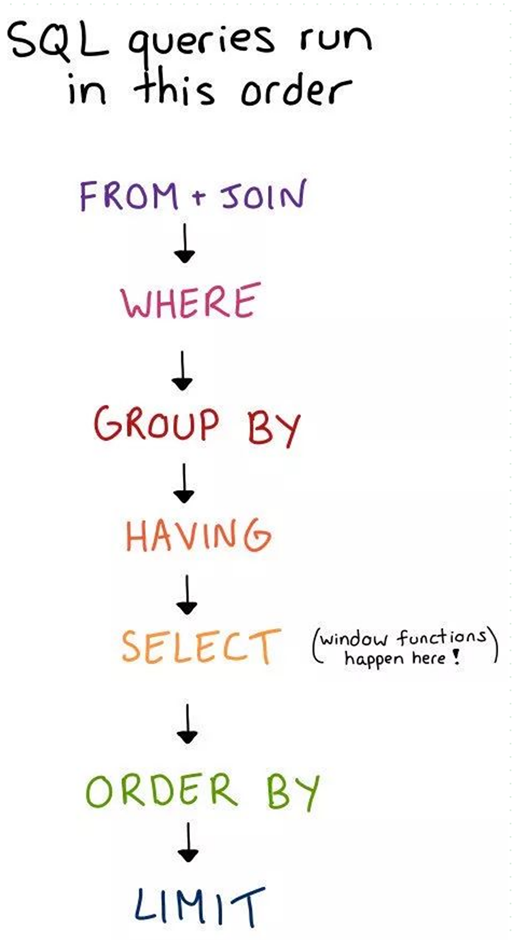 SQL queries run
in this order
FROM + JOIN
WHERE
GROUP BY
HAVING
SELECT (window functions
happen here!)
ORDER BY
LIMIT